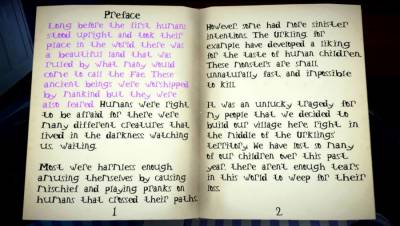 Preface
Long before the first humans
stood upright and took their
place in the world there was
a beautiful land that was
ruled by what many would
come to call the Fae. These
ancient beings were worshipped
by mankind but they were
also feared Humans were right
to be afraid for there were
many different creatures that
lived in the darkness watching
us, waiting.
Most were harmless enough
amusing themselves by causing
mischief and playing pranks on
humans that crossed their paths.
1
However, some had more sinister
intentions. The Urklings for
example have developed a liking
for the taste of human children.
These monsters are small,
unnaturally fast and impossible
to kill.
It was an unlucky tragedy for
my people that we decided to
build our village here right in
the middle of the Urklings
territory. We have lost so many
of our children over this past
year, there arent enough tears
in this world to weep for their
loss.
2